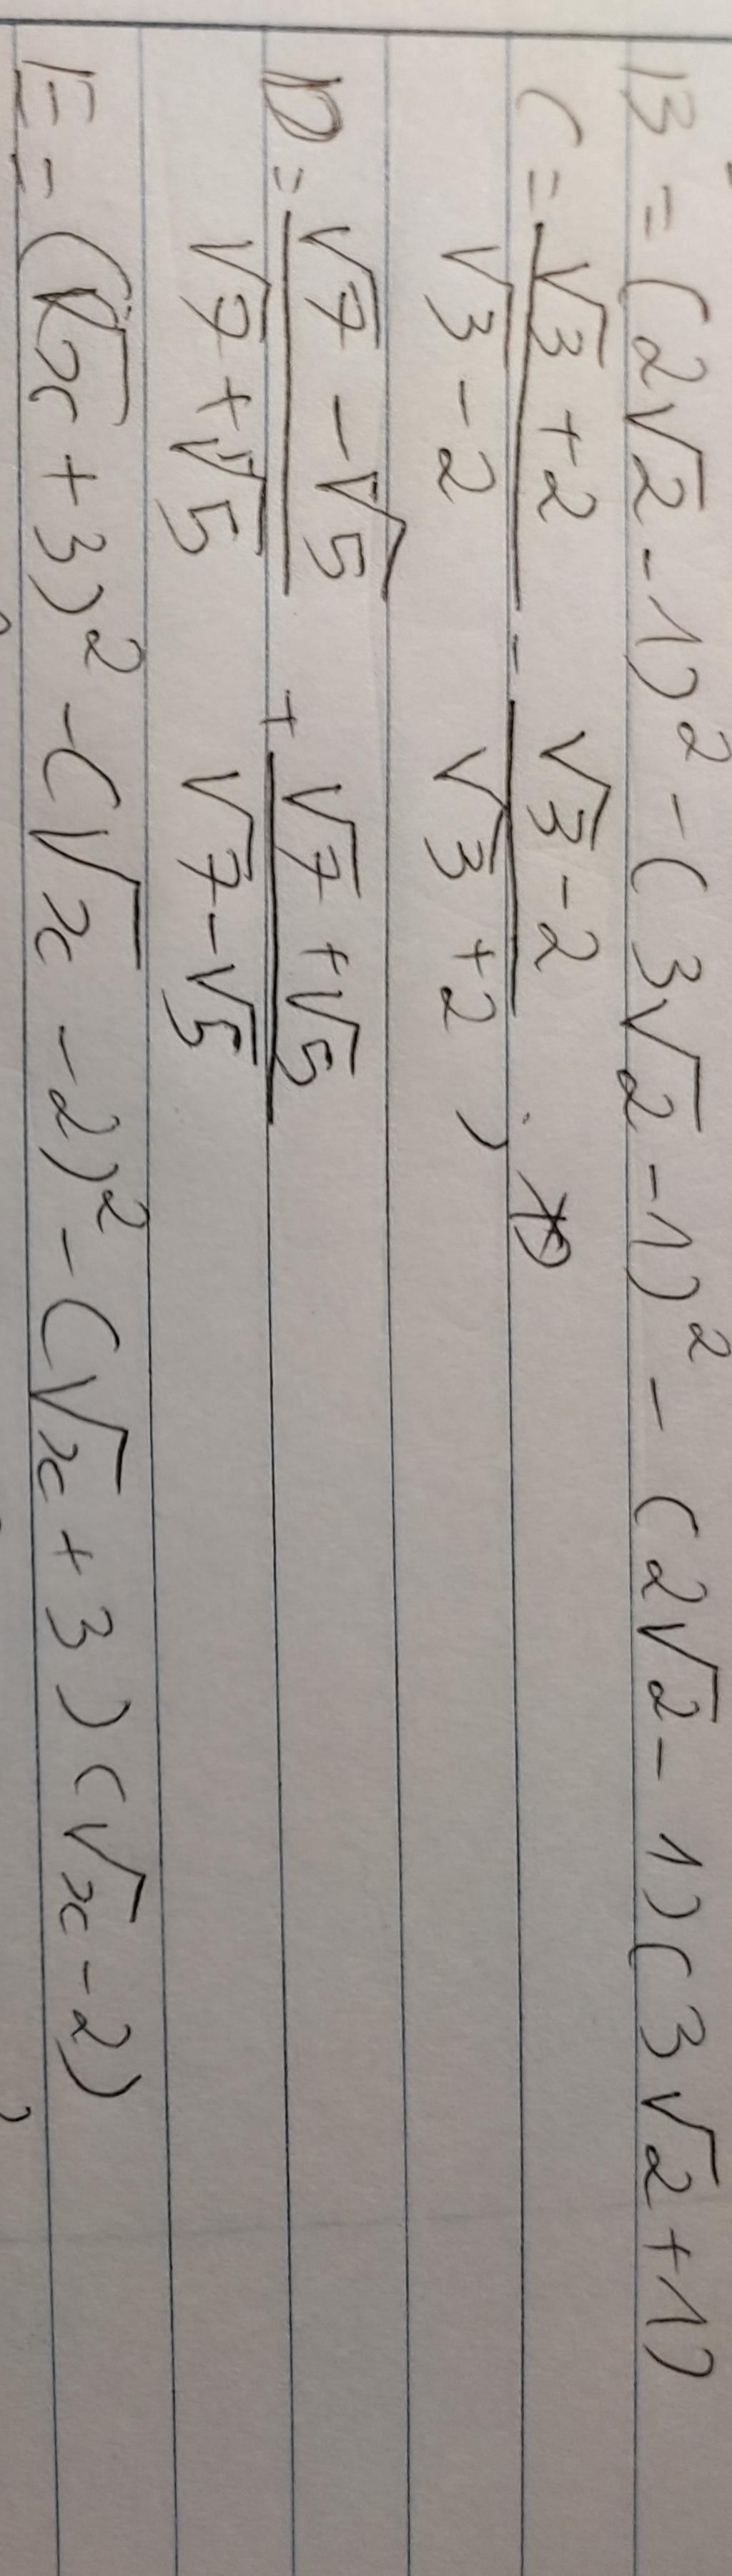 B = (2√2 - 1)² - (3√2 - 1)² - (2√2 - 1)(3√2 + 1)
C = (√3 + 2)/(√3 - 2) - (√3 - 2)/(√3 + 2) ;
D = (√7 - √5)/(√7 + √5) + (√7 + √5)/(√7 - √5)
E = (√x + 3)² - (√x - 2)² - (√x + 3)(√x - 2)